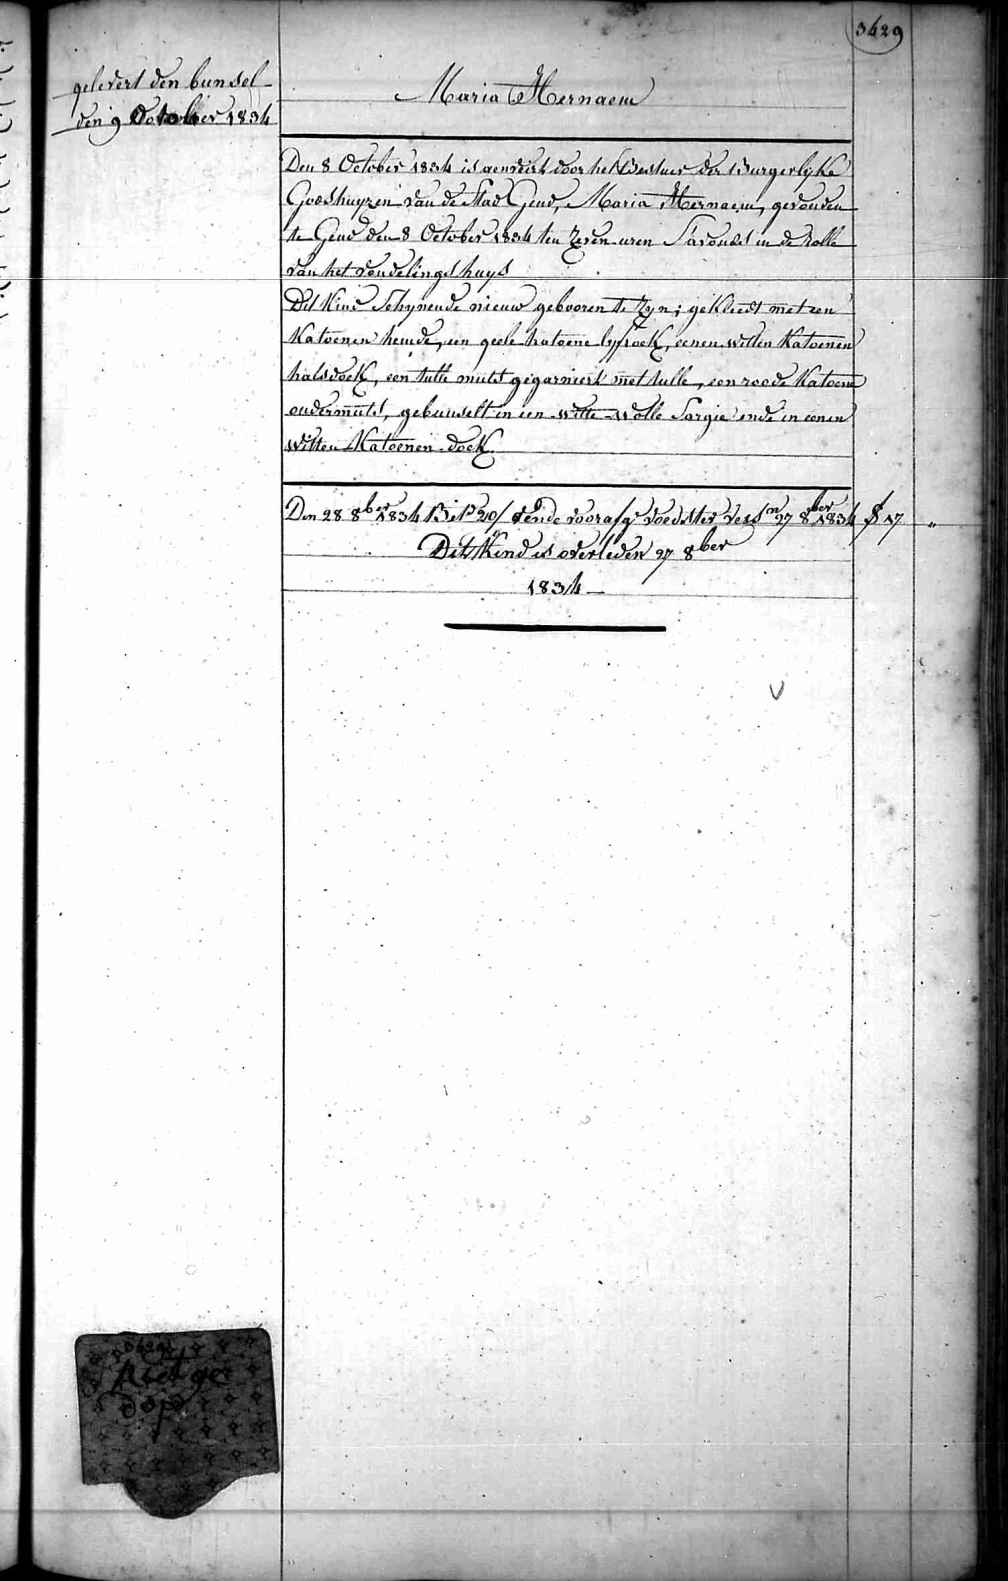 3629
gelevert den bunsel
den 9 October 1834
Maria Hernaem
Den 8 October 1834 is aenveirt door het Bestuer der Burgerlyke
Godshuyzen van de Stad Gend, Maria Hernaem, gevonden
te Gend den 8 October 1834 ten zeven uren S'avonds in de rolle
van het vondelingshuys
Dit Kind Schynende nieuw gebooren te zyn; gekleedt met een
Katoenen hemde, een geele katoene lyfrock, eenen witten Katoenen
halsdoek, een tulle muts gegarniert met tulle, een roode Katoene
ondermuts, gebunselt in een witte wolle Sargie ende in eenen
witten Katoenen doek.
Den 28 8ber 1834 20/ voedster 27 8ber 1834 17 "
Dit Kind is overleden 27 8ber
1834
3629
niet ge
dopt